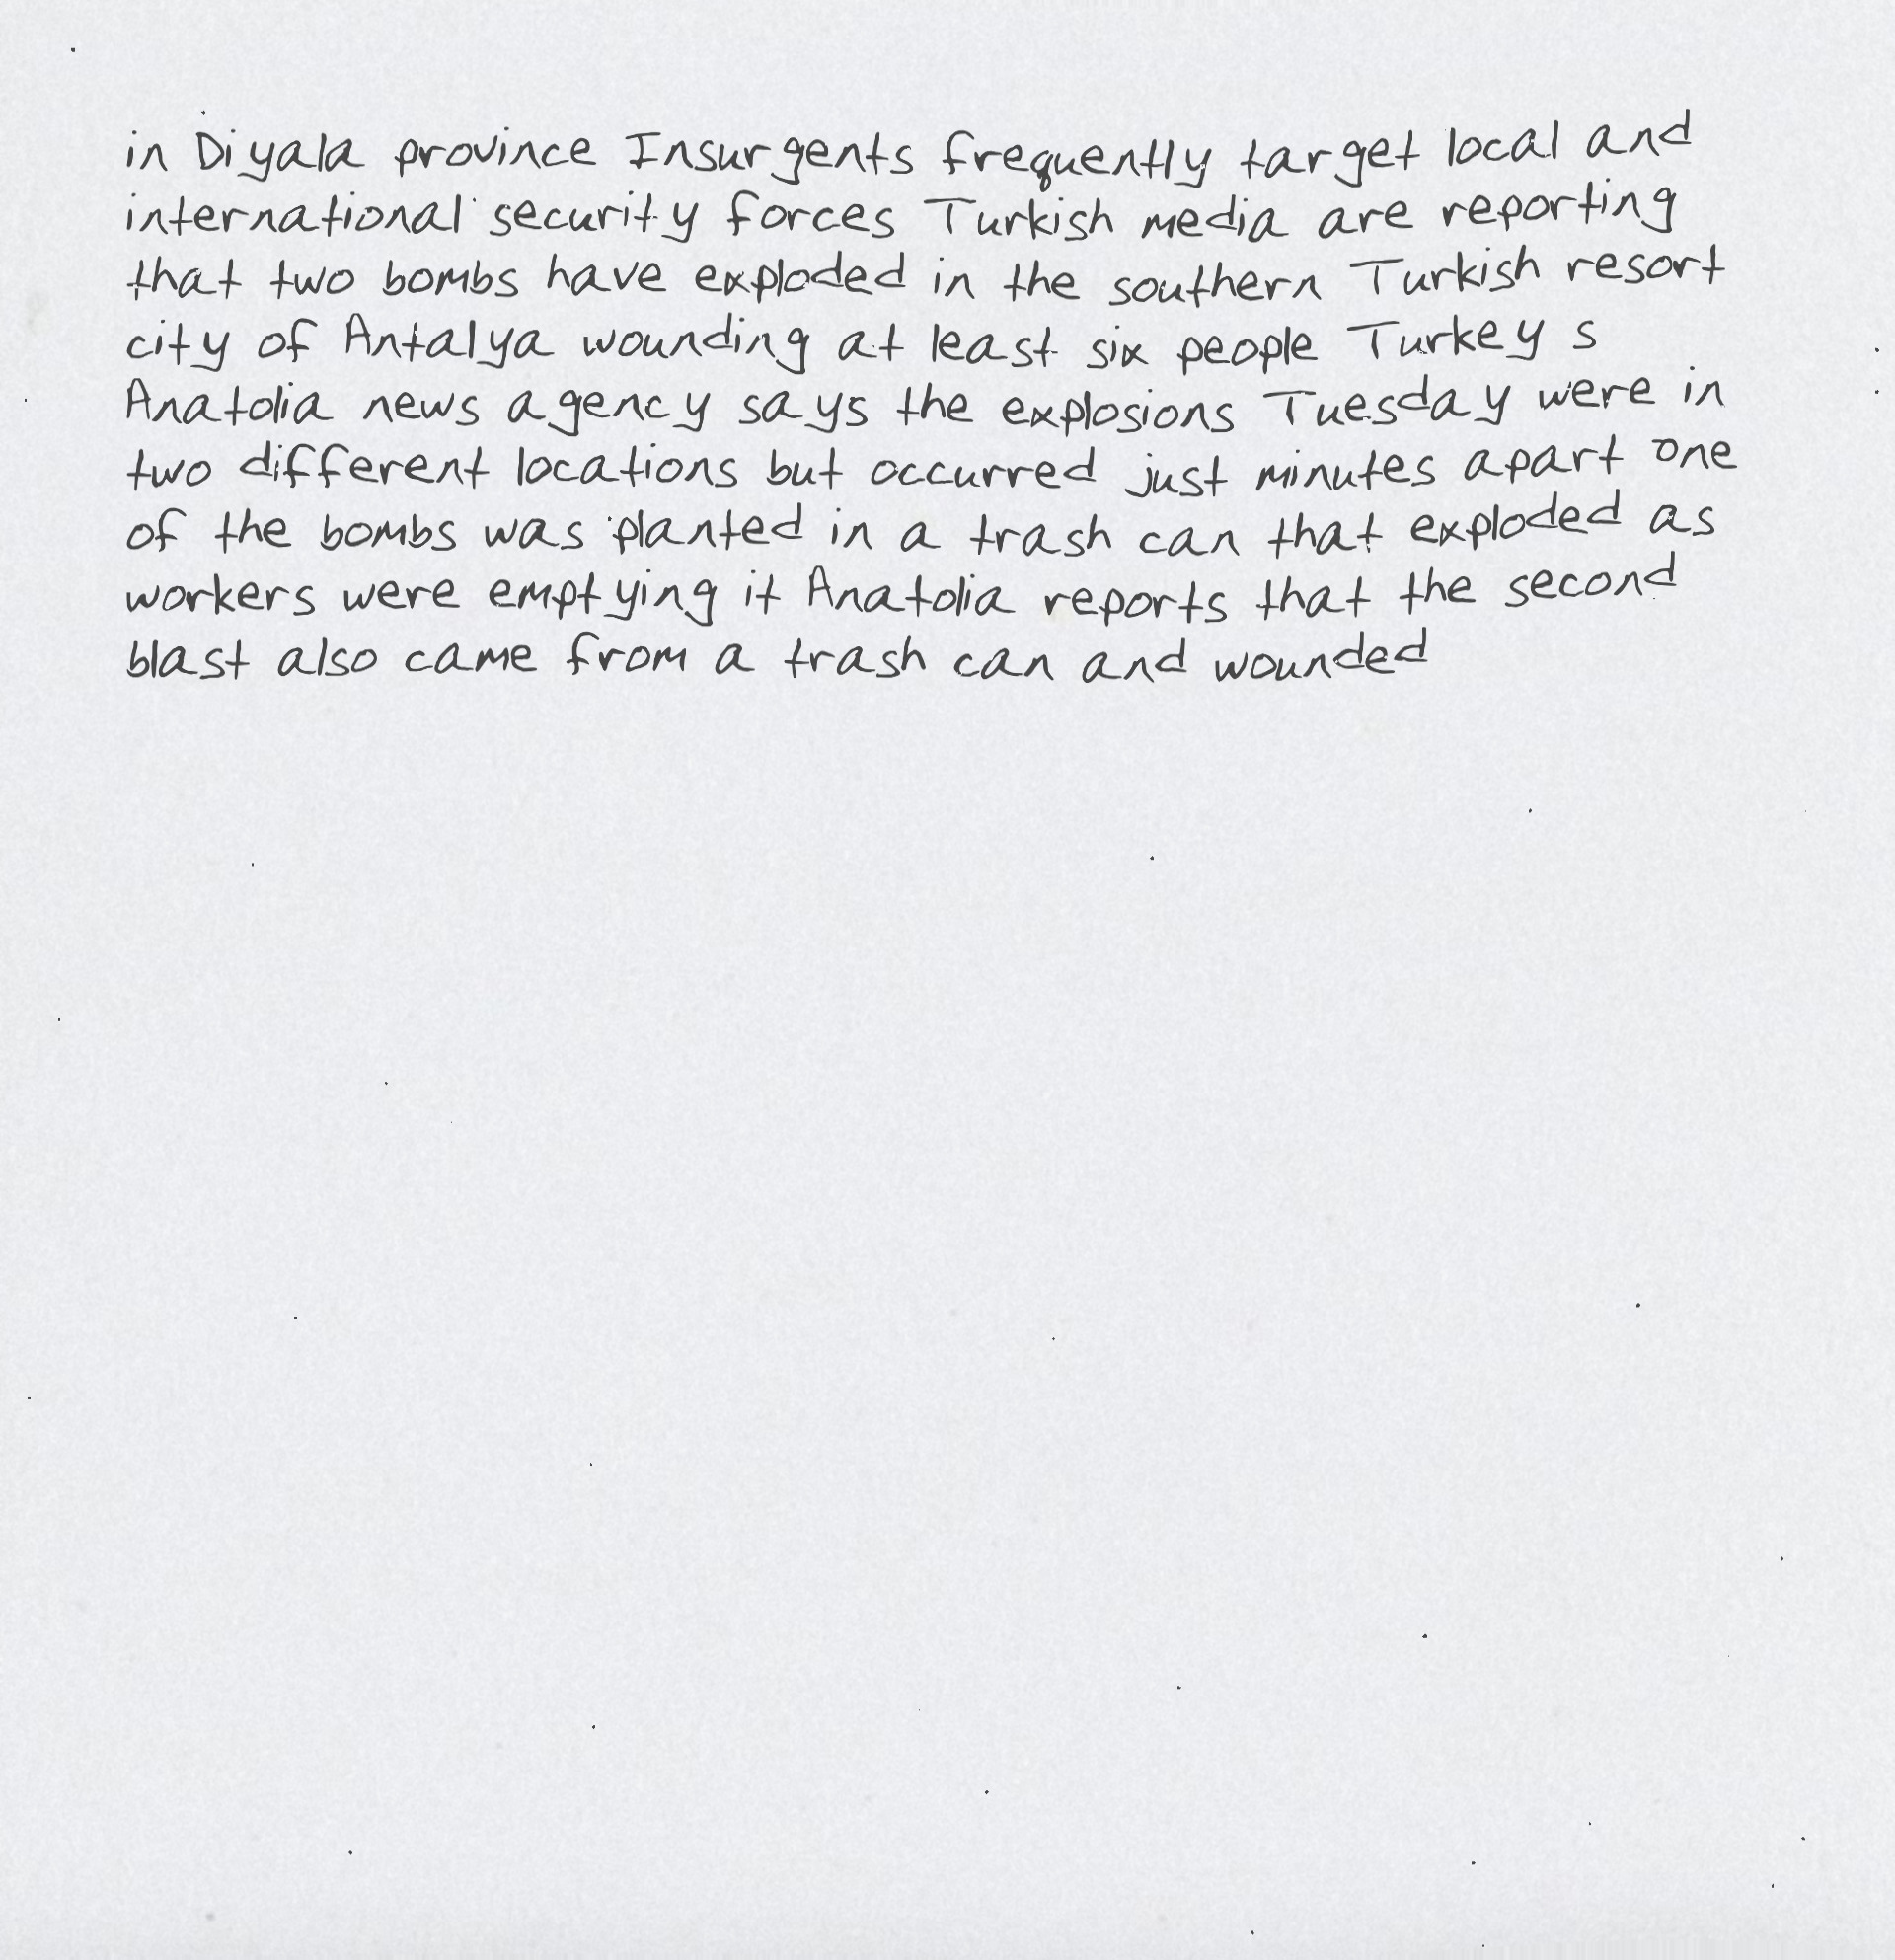 in Diyala province Insurgents frequently target local and
international security forces Turkish media are reporting
that two bombs have exploded in the southern Turkish resort
city of Antalya wounding at least six people Turkey s
Anatolia news agency says the explosions Tuesday were in
two different locations but occurred just minutes apart one
of the bombs was planted in a trash can that exploded as
workers were emptying it Anatolia reports that the second
blast also came from a trash can and wounded